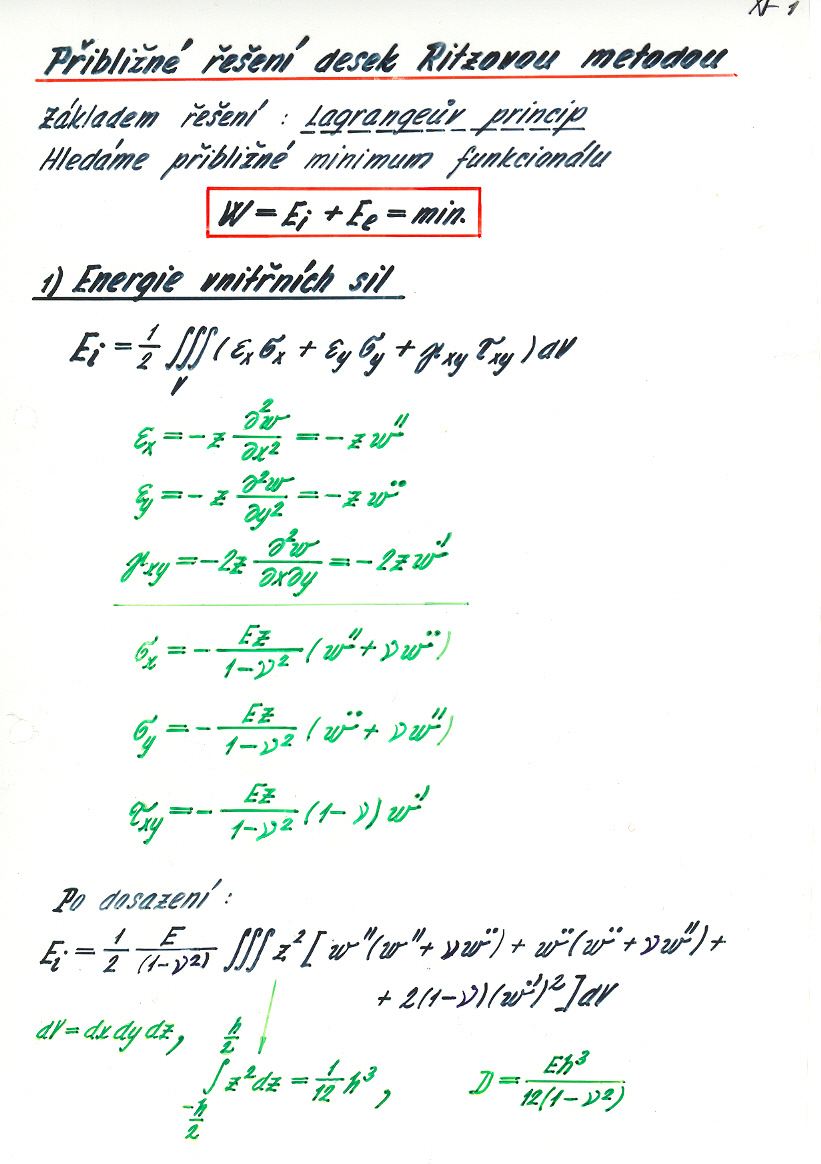 XI-1
Přibližné řešení desek Ritzovou metodou
Základem řešení : Lagrangeův princip
Hledáme přibližné minimum funkcionálu
W = Ei + Ee = min.
1) Energie vnitřních sil
Ei = 1/2 ∭_V (εx σx + εy σy + γxy τxy) dV
εx = - z ∂²w/∂x² = - z w''
εy = - z ∂²w/∂y² = - z w^{••}
γxy = - 2z ∂²w/∂x∂y = - 2z w^{•'}
σx = - Ez/(1-ν²) (w'' + ν w^{••})
σy = - Ez/(1-ν²) (w^{••} + ν w'')
τxy = - Ez/(1-ν²) (1-ν) w^{•'}
Po dosazení :
Ei = 1/2 E/(1-ν²) ∭ z² [ w''(w'' + ν w^{••}) + w^{••}(w^{••} + ν w'') +
+ 2(1-ν)(w^{•'})² ] dV
dV = dx dy dz,
∫_{-h/2}^{h/2} z² dz = 1/12 h³, D = Eh³/12(1-ν²)